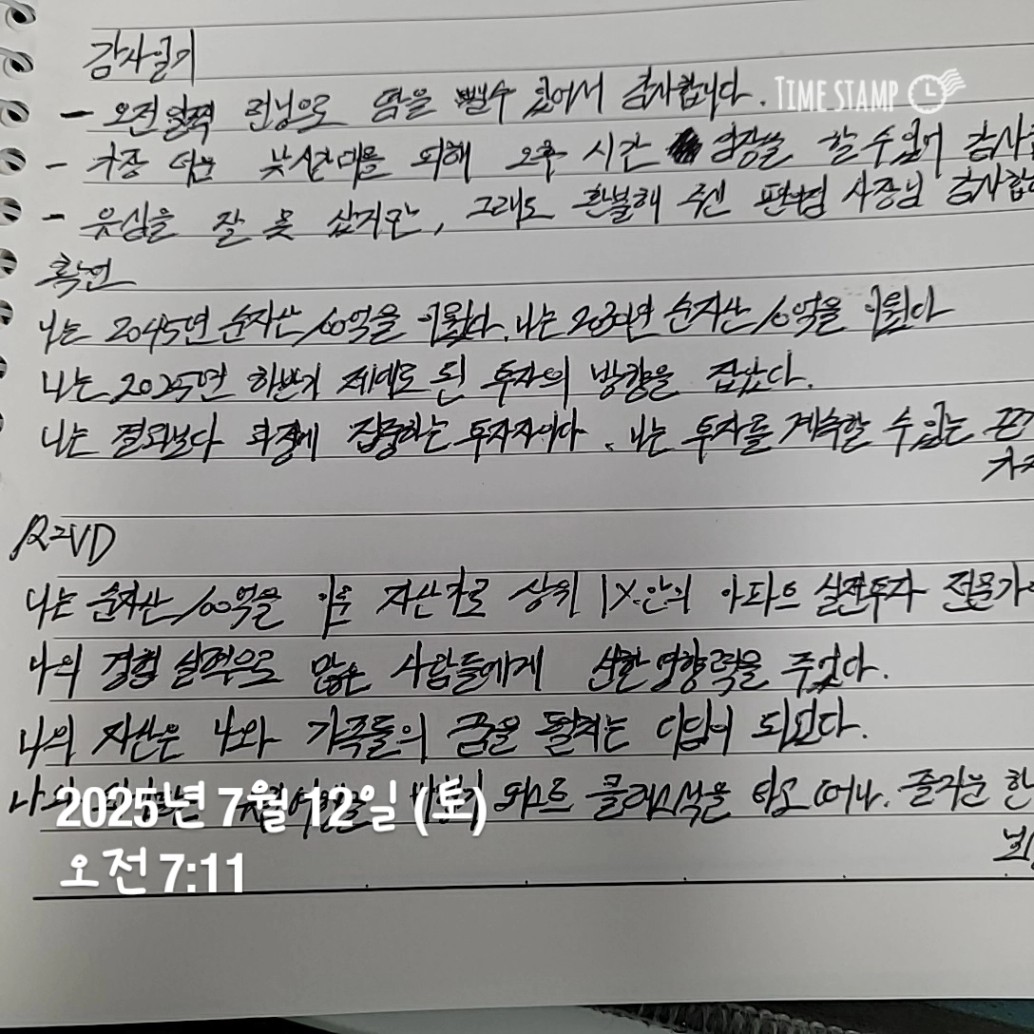 감사일기
TIME STAMP
- 오전 일찍 런닝으로 땀을 뺄수 있어서 감사합니다.
- 가장 더운 낮시간대를 피해 오후 시간 임장을 할 수 있어 감사
- 유심을 잘 못 샀지만, 그래도 환불해 주신 편의점 사장님 감사합
확언
나는 2045년 순자산 100억을 이뤘다. 나는 2030년 순자산 10억을 이뤘다
나는 2025년 하반기 제대로 된 투자의 방향을 잡았다.
나는 결과보다 과정에 집중하는 투자자이다. 나는 투자를 계속할 수 있는
R=VD
나는 순자산 100억을 이룬 자산가로 상위 1%안의 아파트 실전투자 전문가
나의 경험 실력으로 많은 사람들에게 선한영향력을 주었다.
나의 자산은 나와 가족들의 꿈을 펼치는 디딤이 되었다.
클래스석을 타고 떠나. 즐기는 한
2025년 7월 12일 (토)
오전 7:11